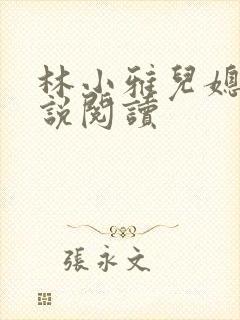 林小雅兒媳
說閱讀
張永文